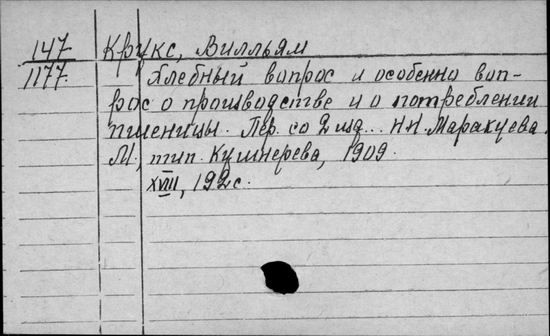 147 Крукс, Вилльям
1177. Хлебный вопрос и особенно воп-
рос о производстве и о потреблении
пшеницы. Пер. со 2 изд... Н.Н. Маракуева.
М., тип. Кушнерева, 1909.
XVIII, 192с.